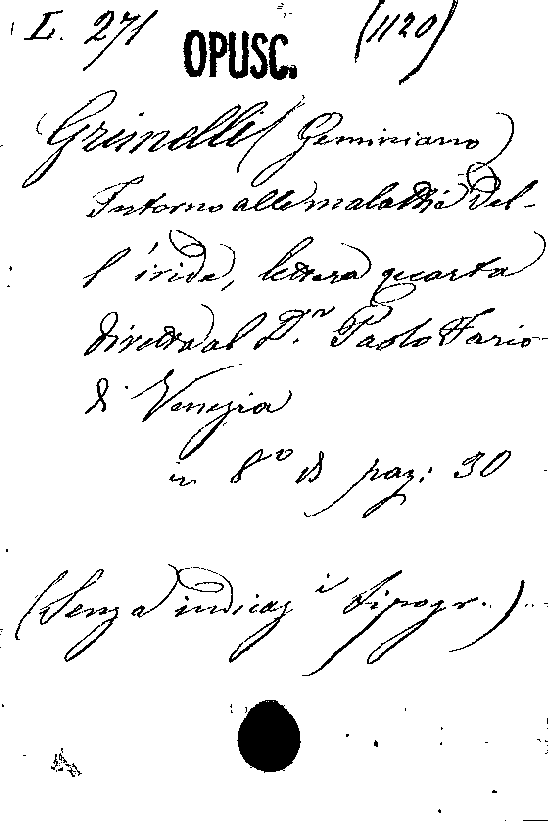 L. 271 OPUSC. (1120)
Grimelli (Geminiano)
Intorno alle malattie del-
l'iride, lettera quarta
diretta al D.r Paolo Fario
di Venezia
in 8º di pag: 30
(Senza indicaz.i tipogr.)